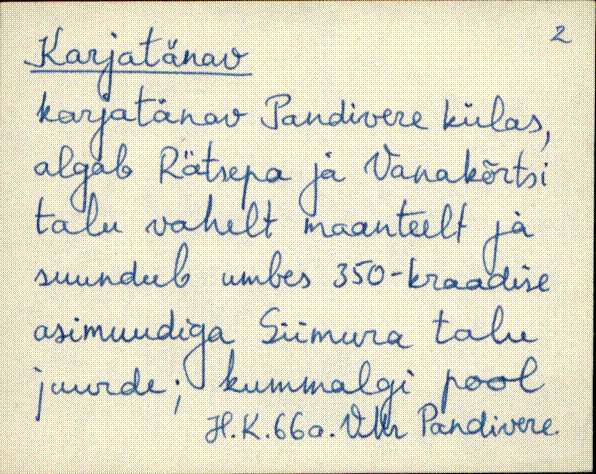 2
Karjatänav
karjatänav Pandivere külas,
algab Rätsepa ja Vanakõrtsi
talu vahelt maanteelt ja
suundub umbes 350-kraadise
asimuudiga Siimura talu
juurde; kummalgi pool
H.K.66a. VMr Pandivere.